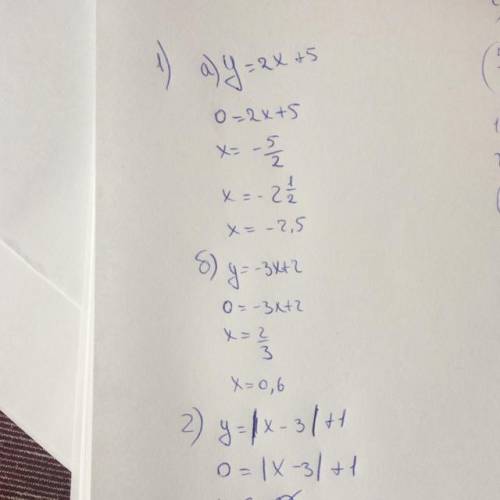 1) а) y=2x+5
0=2x+5
x= -5/2
x=-2 1/2
x= -2,5
б) y=-3x+2
0=-3x+2
x=2/3
x=0,6
2) y=|x-3|+1
0=|x-3|+1